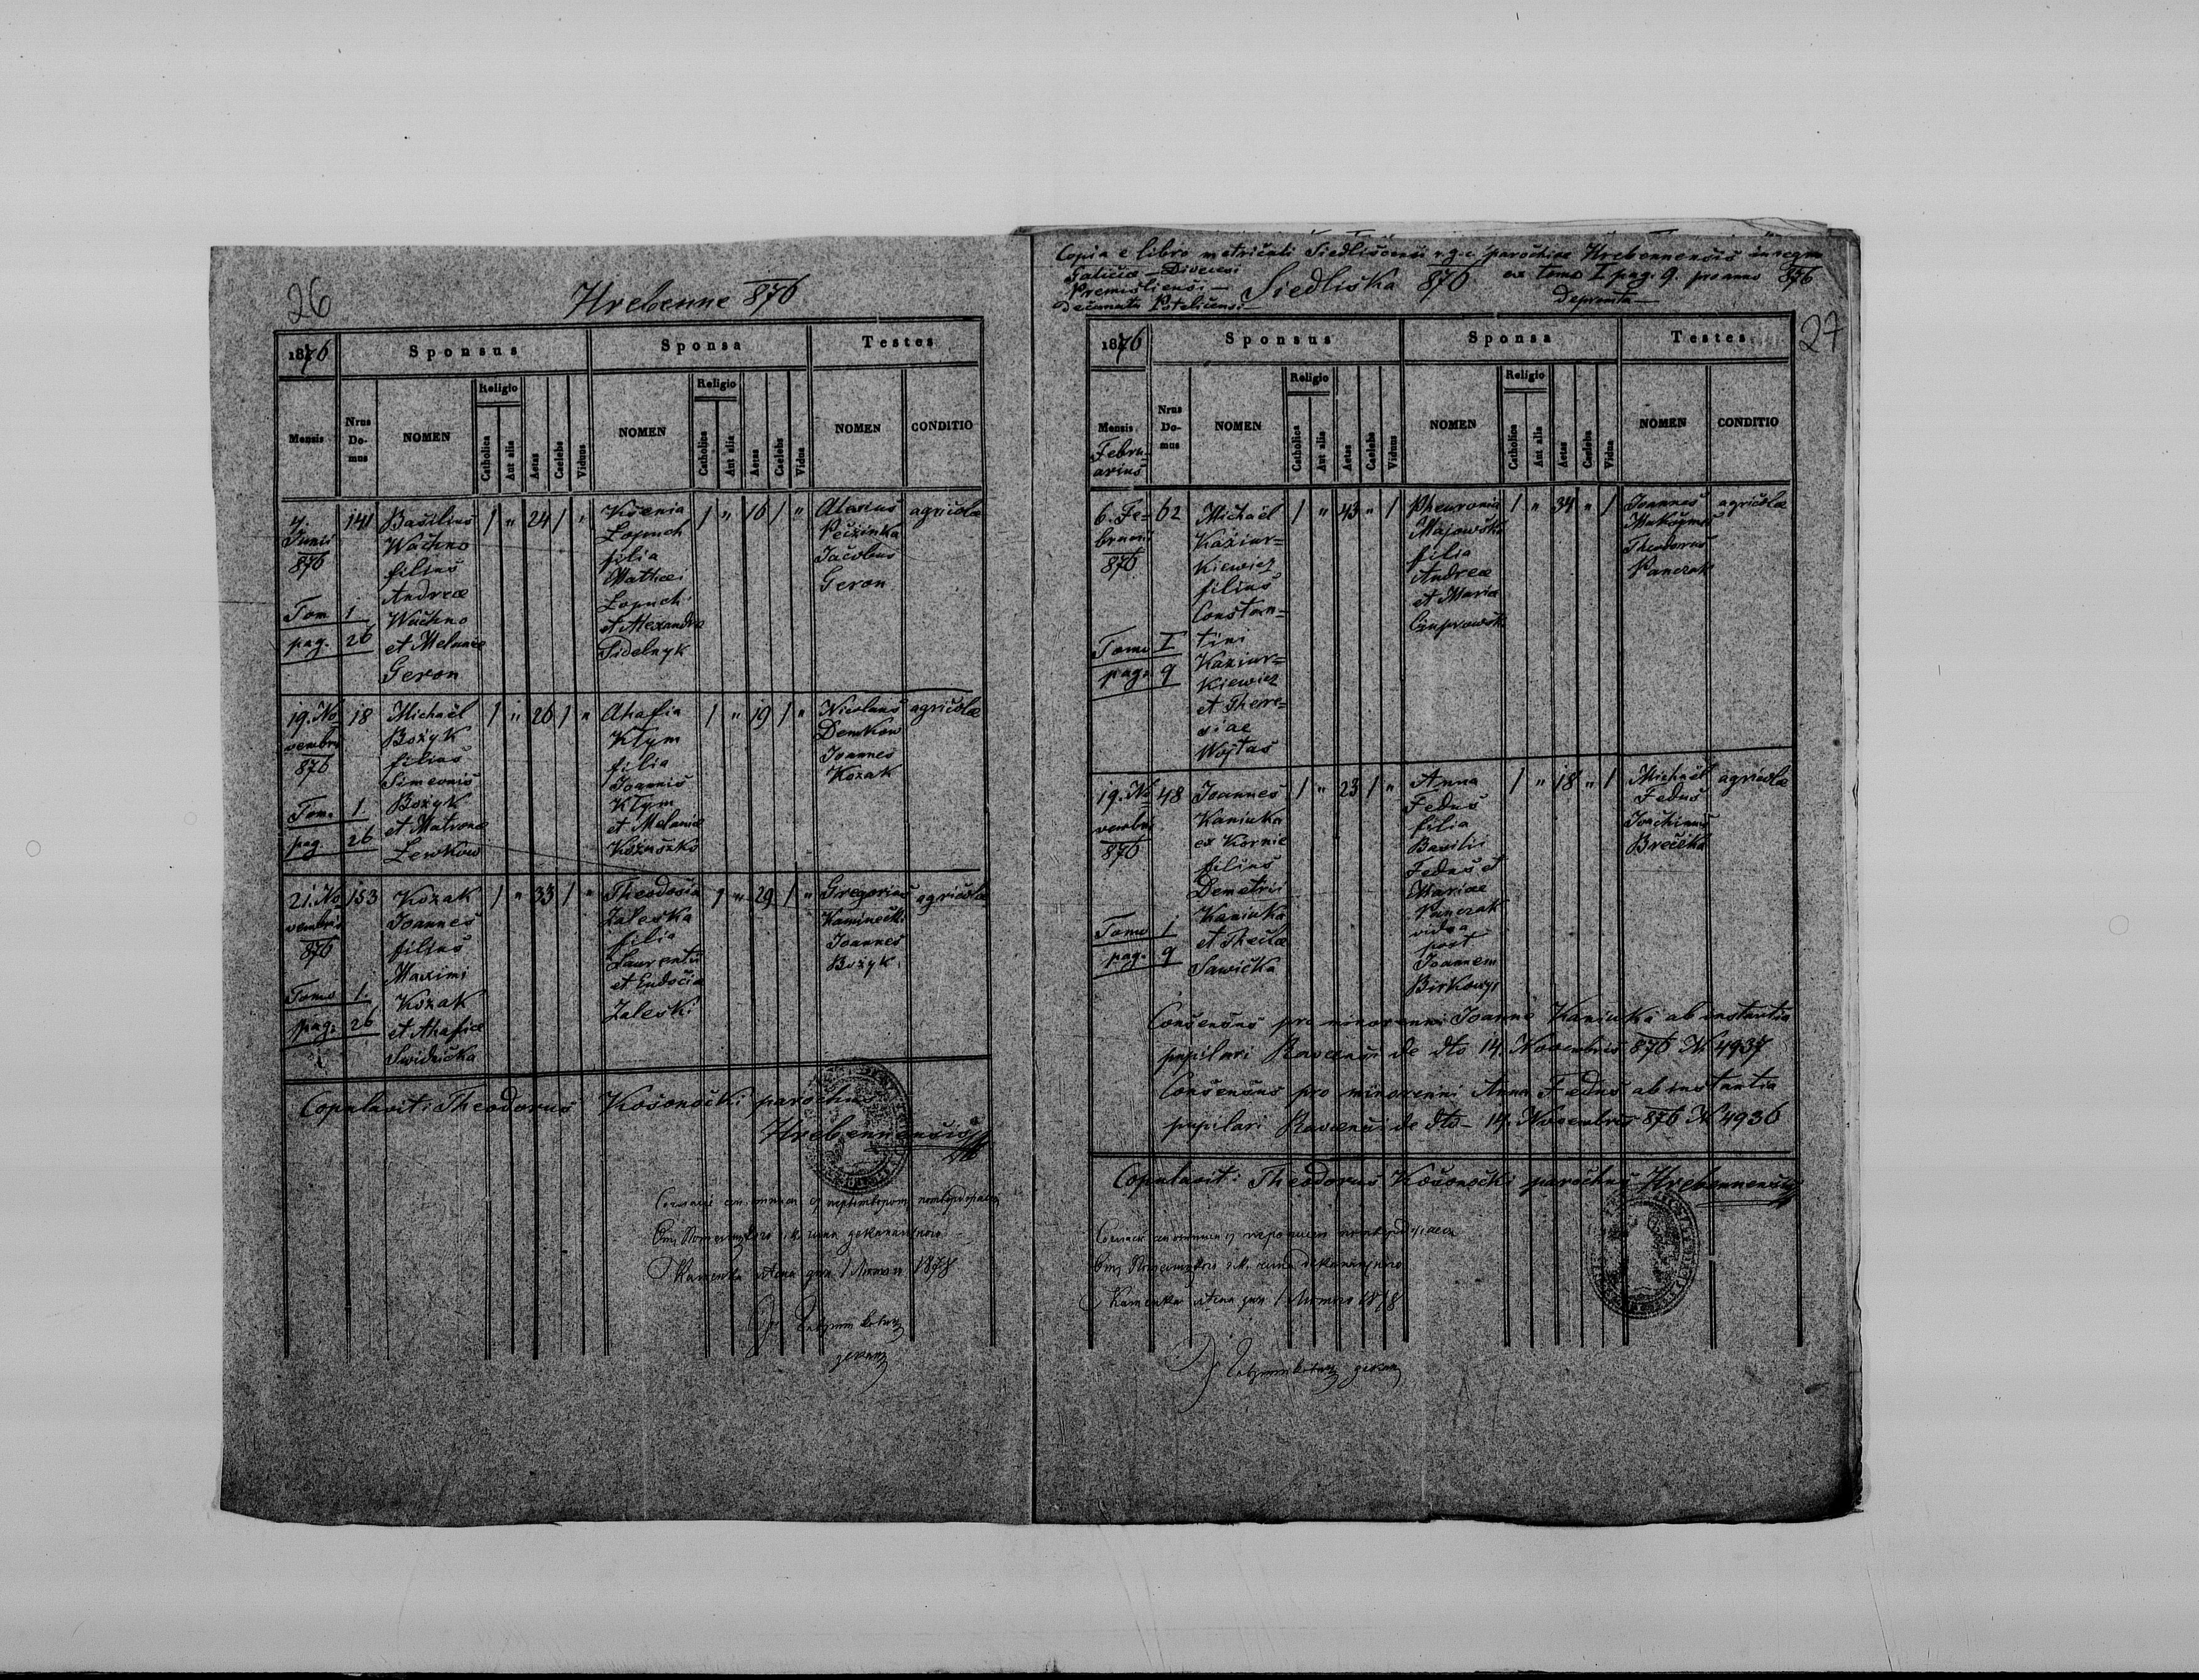 26
Hrebenne 876
1876 Sponsus Sponsa Testes
Mensis Nrus Do- mus NOMEN Religio Catholica Aut alia Aetas Caelebs Viduus NOMEN Religio Catholica Aut alia Aetas Caelebs Vidua NOMEN CONDITIO
7. Junii 876
Tom 1
pag. 26
141
Basilius
Wachno
filius
Andreae
Wachno
et Melaniae
Geron
1 " 24 1 "
Ksenia
Lopuch
filia
Mathei
Lopuch
et Alexandra
Sidelnyk
1 " 16 1 "
Alexius
Jacobus
Geron
agricolae
19. No
vembris
876
Tom. 1.
pag. 26
18
Michaël
Bożyk
filius
Simeonis
Bożyk
et Matronae
Lewkow
1 " 26 1 "
Ahafia
Kłym
filia
Joannis
Kłym
et Melaniae
Kożuszko
1 " 19 1 "
Nicolaus
Demkow
Joannes
Kozak
agricolae
21. No
vembris
876
Tomo 1.
pag. 26
153
Kozak
Joannes
filius
Maximi
Kozak
et Ahafiae
1 " 33 1 "
Theodosia
Zaleska
filia
Laurentii
et Eudocia
Zaleski
1 " 29 1 "
Gregorius
Joannes
Bożyk.
agricolae
Copulavit: Theodorus Kosonocki parochus
Hrebennensis
1878
Copia e libro metricali Siedliscensi r.g.c. parochiae Hrebennensis in regno
Galiciae – Dioecesi
Premisliensi –
Decanatu Potelicensi –
Siedliska 876
ex tomo I. pag. 9. pro anno 876
Depromta –
27
1876 Sponsus Sponsa Testes
Mensis Nrus Do- mus NOMEN Religio Catholica Aut alia Aetas Caelebs Viduus NOMEN Religio Catholica Aut alia Aetas Caelebs Vidua NOMEN CONDITIO
Febru-
arius
6. Fe-
bruarii
876
Tomo I
pag. 9
62
Michaël
Kaziur=
kiewicz
filius
Constan=
tini
Kaziur=
kiewicz
et There=
siae
Wojtas
1 " 43 " 1
Majowska
filia
Andreae
et Maria
1 " 34 " 1
Joannes
Theodorus
Panczak
agricolae
19. No
vembris
876
Tomo 1
pag. 9
48
Joannes
Kaniuka
ex Kornie
filius
Demetrii
Kaniuka
et Theclae
Sawicka
1 " 23 1 "
Anna
Feduś
filia
Basilii
Feduś et
Mariae
Panczak
vidua
post
Joannem
1 " 18 " 1
Michaël
Feduś
Joachimus
agricolae
Consensus pro minorenni Joanne Kaniuka ab instantia
pupilari Ravensi de dto 14. Novembris 876 N. 4937
Consensus pro minorenni Anna Feduś ab instantia
pupilari Ravensi de dto – 14. Novembris 876 N 4936
Copulavit: Theodorus Kosonocki parochus Hrebennensis
1878